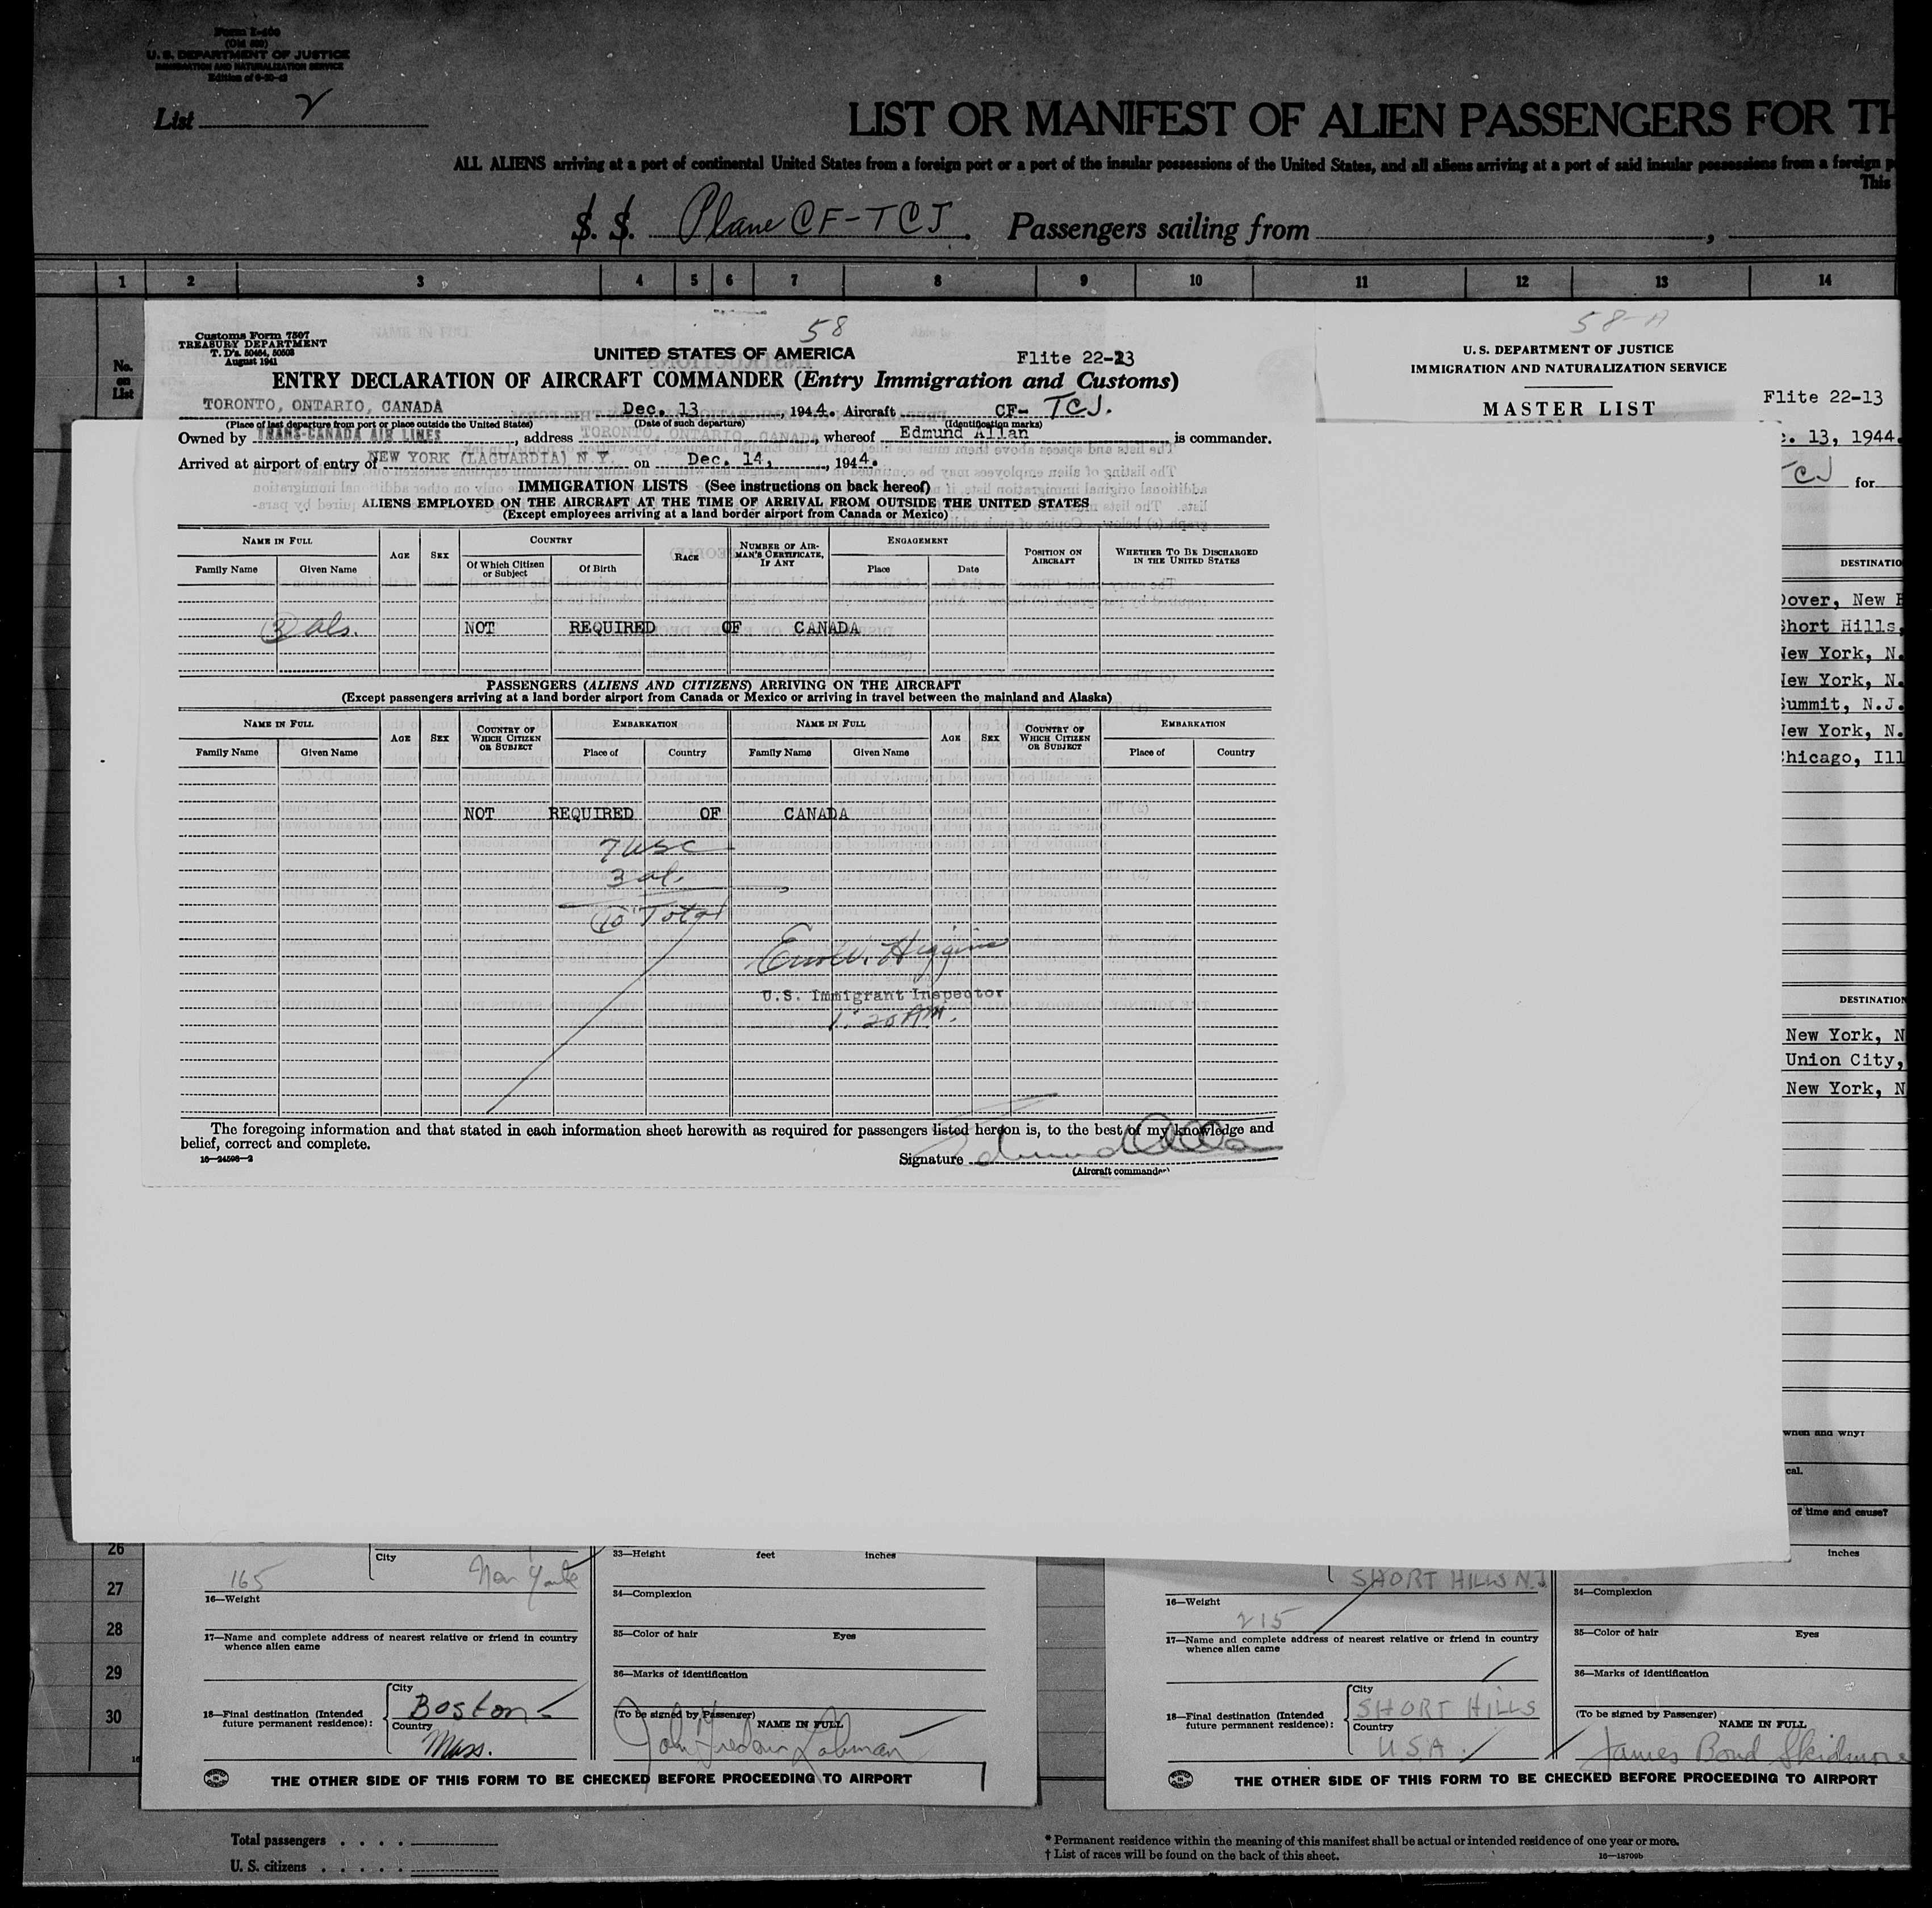 Form I-466
U. S. DEPARTMENT OF JUSTICE
IMMIGRATION AND NATURALIZATION SERVICE
List 2
LIST OR MANIFEST OF ALIEN PASSENGERS FOR TH
ALL ALIENS arriving at a port of continental United States from a foreign port or a port of the insular possessions of the United States, and all aliens arriving at a port of said insular possessions from a foreign p
This
S. S. Plane CF-TCJ. Passengers sailing from
1 2 3 4 5 6 7 8 9 10 11 12 13 14
No. on List
58
Customs Form 7507
TREASURY DEPARTMENT
T. D's. 50464, 50503
August 1941
UNITED STATES OF AMERICA
Flite 22-13
ENTRY DECLARATION OF AIRCRAFT COMMANDER (Entry Immigration and Customs)
TORONTO, ONTARIO, CANADA Dec. 13, 1944. Aircraft CF- TCJ.
(Place of last departure from port or place outside the United States) (Date of such departure) (Identification marks)
Owned by TRANS-CANADA AIR LINES, address TORONTO, ONTARIO, CANADA, whereof Edmund Allan is commander.
Arrived at airport of entry of NEW YORK (LAGUARDIA) N.Y. on Dec. 14, 1944.
IMMIGRATION LISTS (See instructions on back hereof)
ALIENS EMPLOYED ON THE AIRCRAFT AT THE TIME OF ARRIVAL FROM OUTSIDE THE UNITED STATES
(Except employees arriving at a land border airport from Canada or Mexico)
NAME IN FULL AGE SEX COUNTRY RACE NUMBER OF AIRMAN'S CERTIFICATE, IF ANY ENGAGEMENT POSITION ON AIRCRAFT WHETHER TO BE DISCHARGED IN THE UNITED STATES
Family Name Given Name Of Which Citizen or Subject Of Birth Place Date
3 als. NOT REQUIRED OF CANADA
PASSENGERS (ALIENS AND CITIZENS) ARRIVING ON THE AIRCRAFT
(Except passengers arriving at a land border airport from Canada or Mexico or arriving in travel between the mainland and Alaska)
NAME IN FULL AGE SEX COUNTRY OF WHICH CITIZEN OR SUBJECT EMBARKATION NAME IN FULL AGE SEX COUNTRY OF WHICH CITIZEN OR SUBJECT EMBARKATION
Family Name Given Name Place of Country Family Name Given Name Place of Country
NOT REQUIRED OF CANADA
7 USC
3 al.
10 Total
Higgins
U.S. Immigrant Inspector
1:20 AM.
The foregoing information and that stated in each information sheet herewith as required for passengers listed hereon is, to the best of my knowledge and
belief, correct and complete.
16-24598-2
Signature Edmund Allan
(Aircraft commander)
58-A
U. S. DEPARTMENT OF JUSTICE
IMMIGRATION AND NATURALIZATION SERVICE
MASTER LIST
Flite 22-13
. 13, 1944.
TCJ for
DESTINATIO
Dover, New H
Short Hills,
New York, N.
New York, N.
Summit, N.J.
New York, N.
Chicago, Ill
DESTINATION
New York, N
Union City,
New York, N
when and why?
cal.
of time and cause?
inches
26
27
28
29
30
City New York
165
16—Weight
17—Name and complete address of nearest relative or friend in country
whence alien came
18—Final destination (Intended
future permanent residence):
City Boston
Country Mass.
33—Height feet inches
34—Complexion
35—Color of hair Eyes
36—Marks of identification
(To be signed by Passenger)
NAME IN FULL
THE OTHER SIDE OF THIS FORM TO BE CHECKED BEFORE PROCEEDING TO AIRPORT
SHORT HILLS N.J.
16—Weight
215
17—Name and complete address of nearest relative or friend in country
whence alien came
18—Final destination (Intended
future permanent residence):
City SHORT HILLS
Country USA
34—Complexion
35—Color of hair Eyes
36—Marks of identification
(To be signed by Passenger)
NAME IN FULL
James Bond Skidmore
THE OTHER SIDE OF THIS FORM TO BE CHECKED BEFORE PROCEEDING TO AIRPORT
Total passengers
U. S. citizens
* Permanent residence within the meaning of this manifest shall be actual or intended residence of one year or more.
† List of races will be found on the back of this sheet.
16—18709b